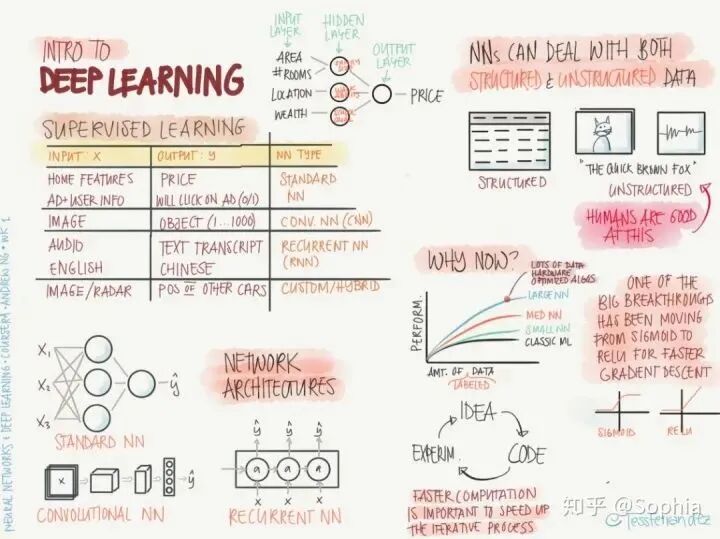 INTRO TO
DEEP LEARNING
INPUT LAYER
HIDDEN LAYER
OUTPUT LAYER
AREA
# ROOMS
LOCATION
WEALTH
PRICE
SUPERVISED LEARNING
INPUT: X OUTPUT: Y NN TYPE
HOME FEATURES PRICE STANDARD
AD+USER INFO WILL CLICK ON AD (0/1) NN
IMAGE OBJECT (1...1000) CONV. NN (CNN)
AUDIO TEXT TRANSCRIPT RECURRENT NN
ENGLISH CHINESE (RNN)
IMAGE/RADAR POS OF OTHER CARS CUSTOM/HYBRID
NNs CAN DEAL WITH BOTH
STRUCTURED & UNSTRUCTURED DATA
STRUCTURED
"THE QUICK BROWN FOX"
UNSTRUCTURED
HUMANS ARE GOOD
AT THIS
WHY NOW?
LOTS OF DATA
HARDWARE
OPTIMIZED ALGOS
LARGE NN
MED NN
SMALL NN
CLASSIC ML
PERFORM.
AMT. OF DATA
LABELED
ONE OF THE
BIG BREAKTHROUGHS
HAS BEEN MOVING
FROM SIGMOID
TO RELU FOR FASTER
GRADIENT DESCENT
SIGMOID
RELU
X1
X2
X3
ŷ
STANDARD NN
NETWORK
ARCHITECTURES
X
ŷ
CONVOLUTIONAL NN
ŷ ŷ ŷ
a a a
X X X
RECURRENT NN
IDEA
CODE
EXPERIM.
FASTER COMPUTATION
IS IMPORTANT TO SPEED UP
THE ITERATIVE PROCESS
NEURAL NETWORKS & DEEP LEARNING • COURSERA • ANDREW NG • WK 1
知乎 @Sophia